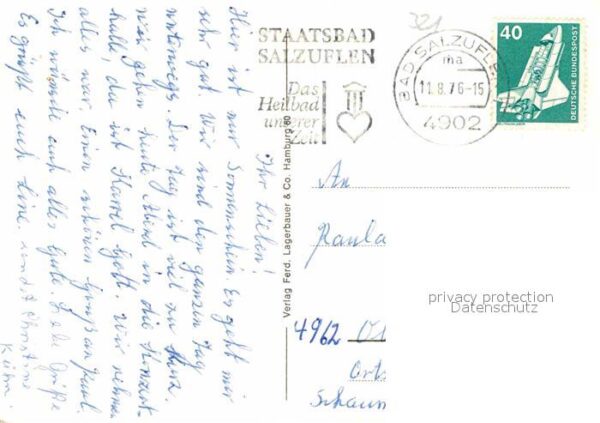 321
STAATSBAD
SALZUFLEN
Das
Heilbad
unserer
Zeit
BAD SALZUFLEN
ma
11.8.76-15
4902
40
DEUTSCHE BUNDESPOST
Ihr Lieben!
Hier ist nur Sonnenschein Es geht mir
sehr gut. Wir sind den ganzen Tag
unterwegs. Der Tag ist viel zu kurz.
Wir gehen heute Abend in die Konzert-
halle, da ist Karel Gott. Wir nehmen
alles war. Einen schönen Gruß an Paul.
Ich wünsche euch alles Gute. Liebe Grüße
Es grüßt euch Line. und Christine
Kühn.
Verlag Ferd. Lagerbauer & Co. Hamburg 60
An
Paula
4962
Orts
Schaum
privacy protection
Datenschutz